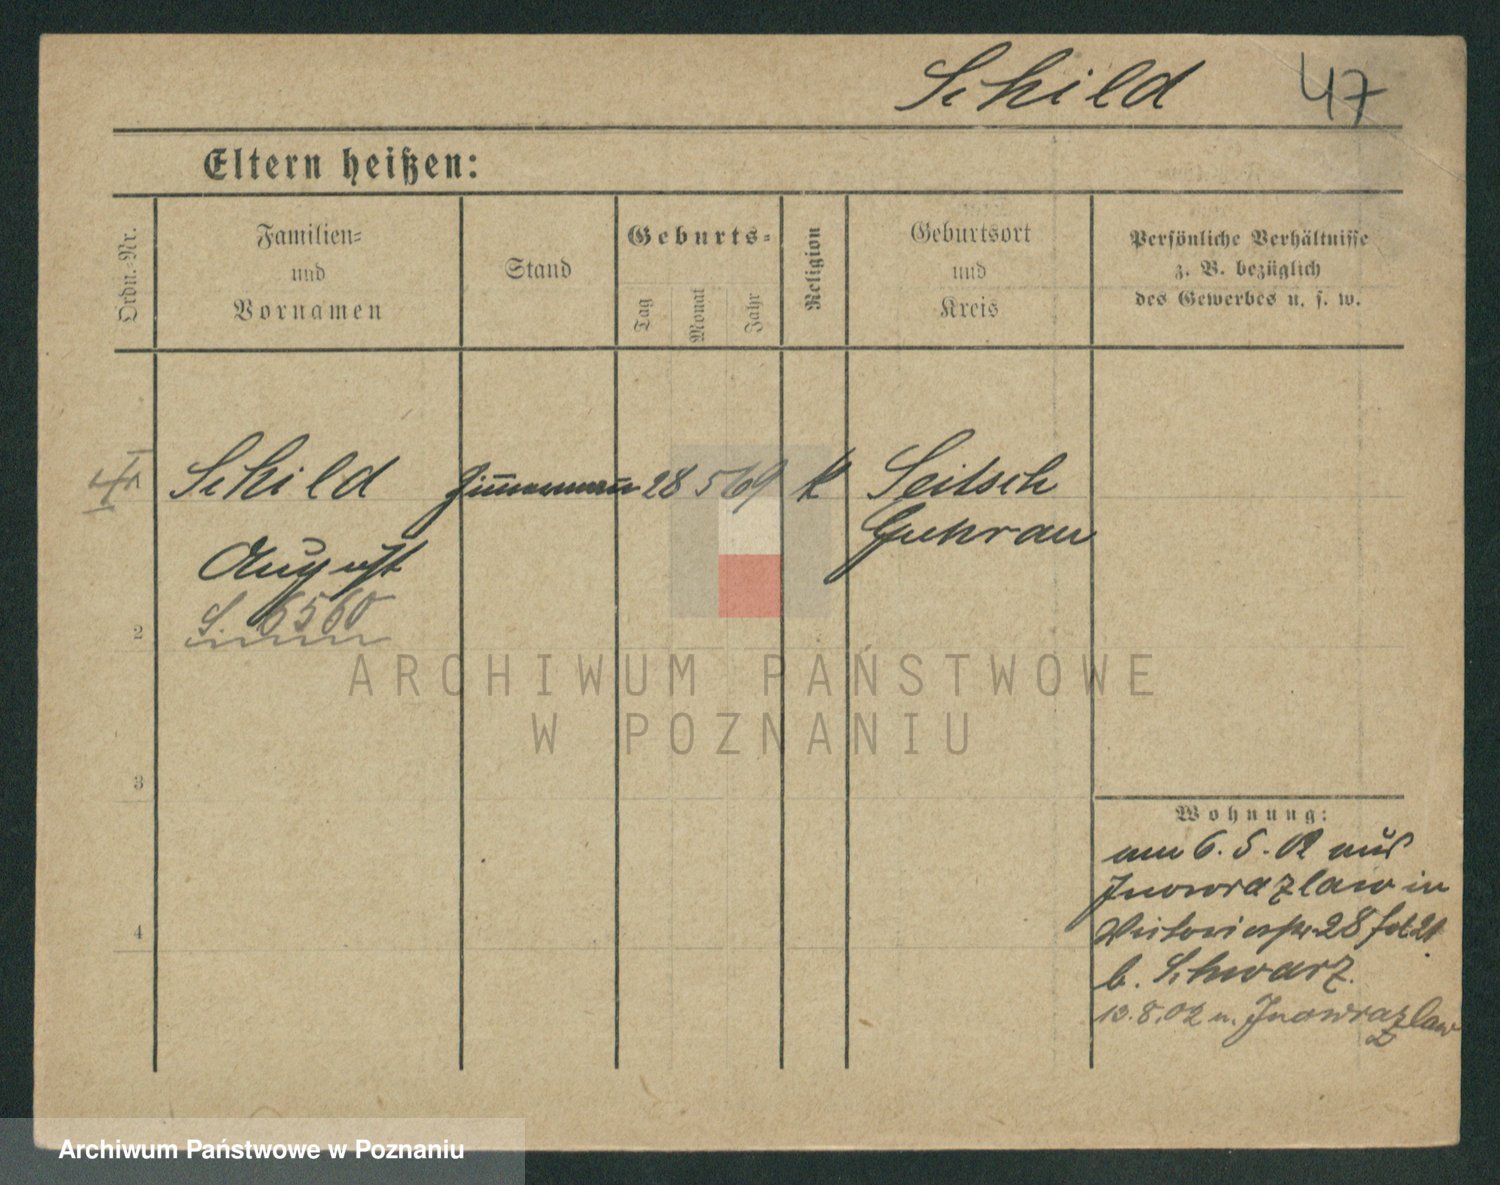 Schild 47
Eltern heißen:
Ordn.-Nr.
Familien-
und
Vornamen
Stand
Geburts-
Tag
Monat
Jahr
Religion
Geburtsort
und
Kreis
Persönliche Verhältnisse
z. B. bezüglich
des Gewerbes u. s. w.
Schild Zimmermann 28 5 69 k Seitsch
Guhrau
August
S. 6560
2
3
4
ARCHIWUM PAŃSTWOWE
W POZNANIU
Wohnung:
am 6.5.02 aus
Inowrazlaw in
Victoriastr 28
b. Schwarz.
13.8.02 n. Inowrazlaw
Archiwum Państwowe w Poznaniu